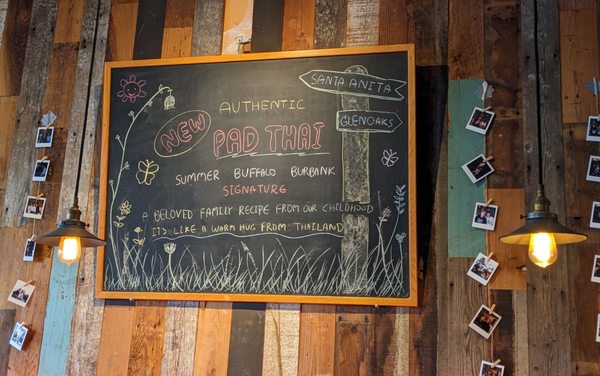 AUTHENTIC
NEW
PAD THAI
SUMMER BUFFALO BURBANK
SIGNATURE
BELOVED FAMILY RECIPE FROM OUR CHILDHOOD
IT'S LIKE A WARM HUG FROM THAILAND
SANTA ANITA
GLENOAKS